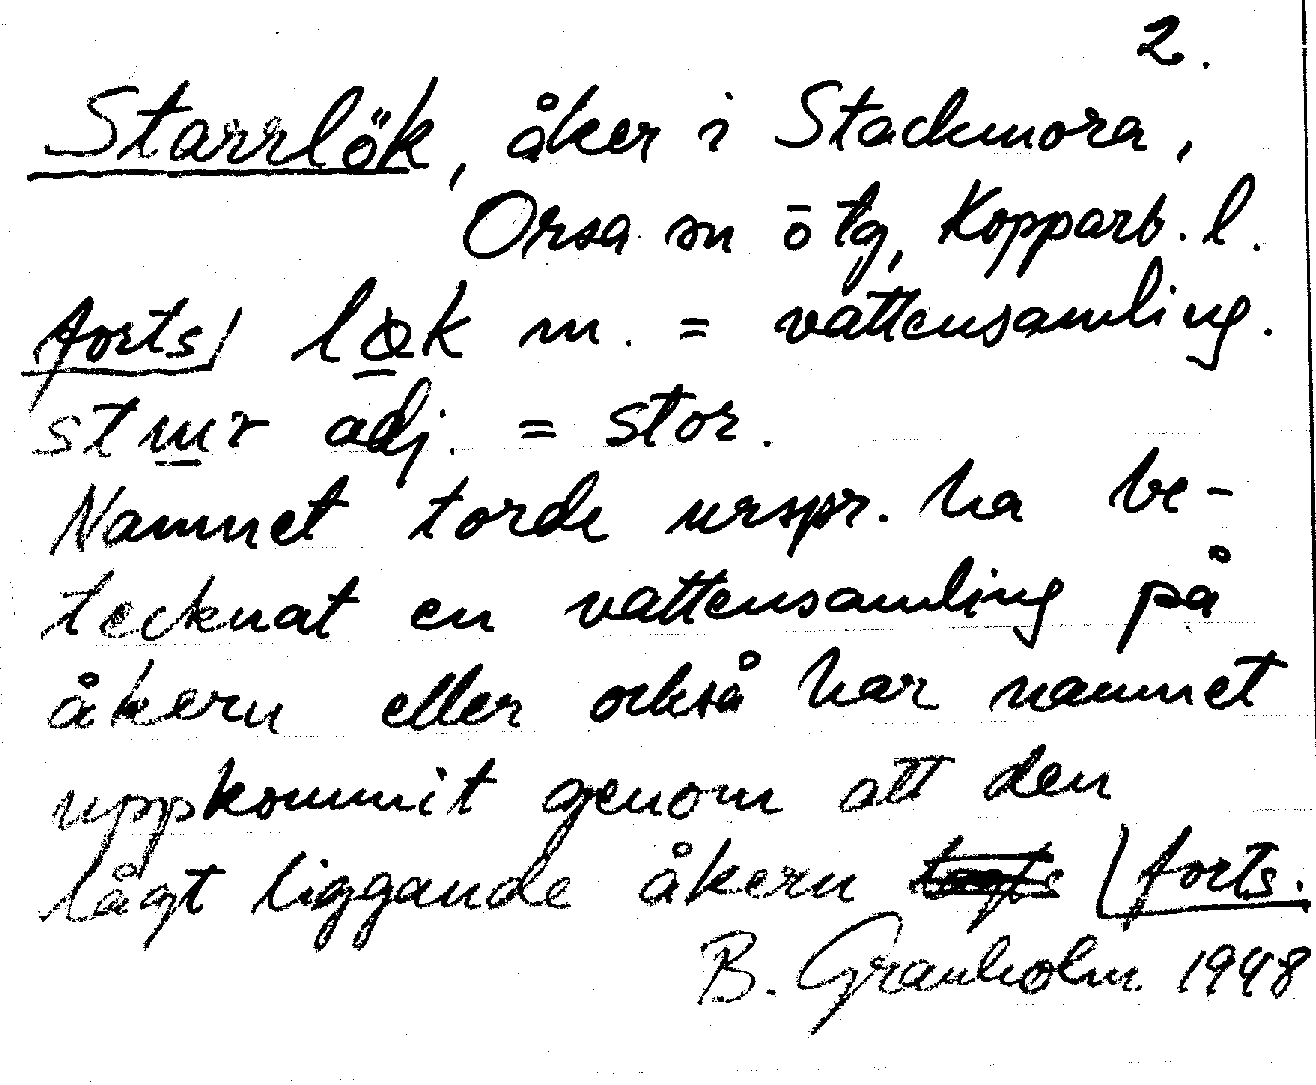 2.
Starrlök, åker i Stackmora,
Orsa sn ö tg, Kopparb. l.
forts/ lœk m. = vattensamling.
adj. = stor.
Namnet torde urspr. ha be-
tecknat en vattensamling på
åkern eller också har namnet
uppkommit genom att den
lågt liggande åkern forts.
B. Granholm 1948